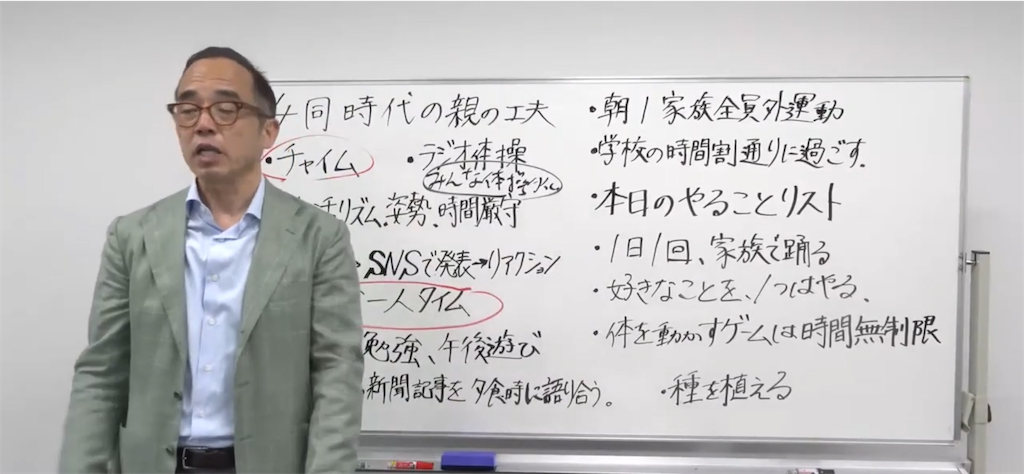 同時代の親の工夫
・チャイム
・ラジオ体操
みんな体操
リズム、姿勢、時間厳守
・SNSで発表→リアクション
一人タイム
勉強、午後遊び
・新聞記事を夕食時に語り合う。
・朝1家族全員外運動
・学校の時間割通りに過ごす.
・本日のやることリスト
・1日1回、家族で踊る
・好きなことを、1つはやる.
・体を動かすゲームは時間無制限
・種を植える